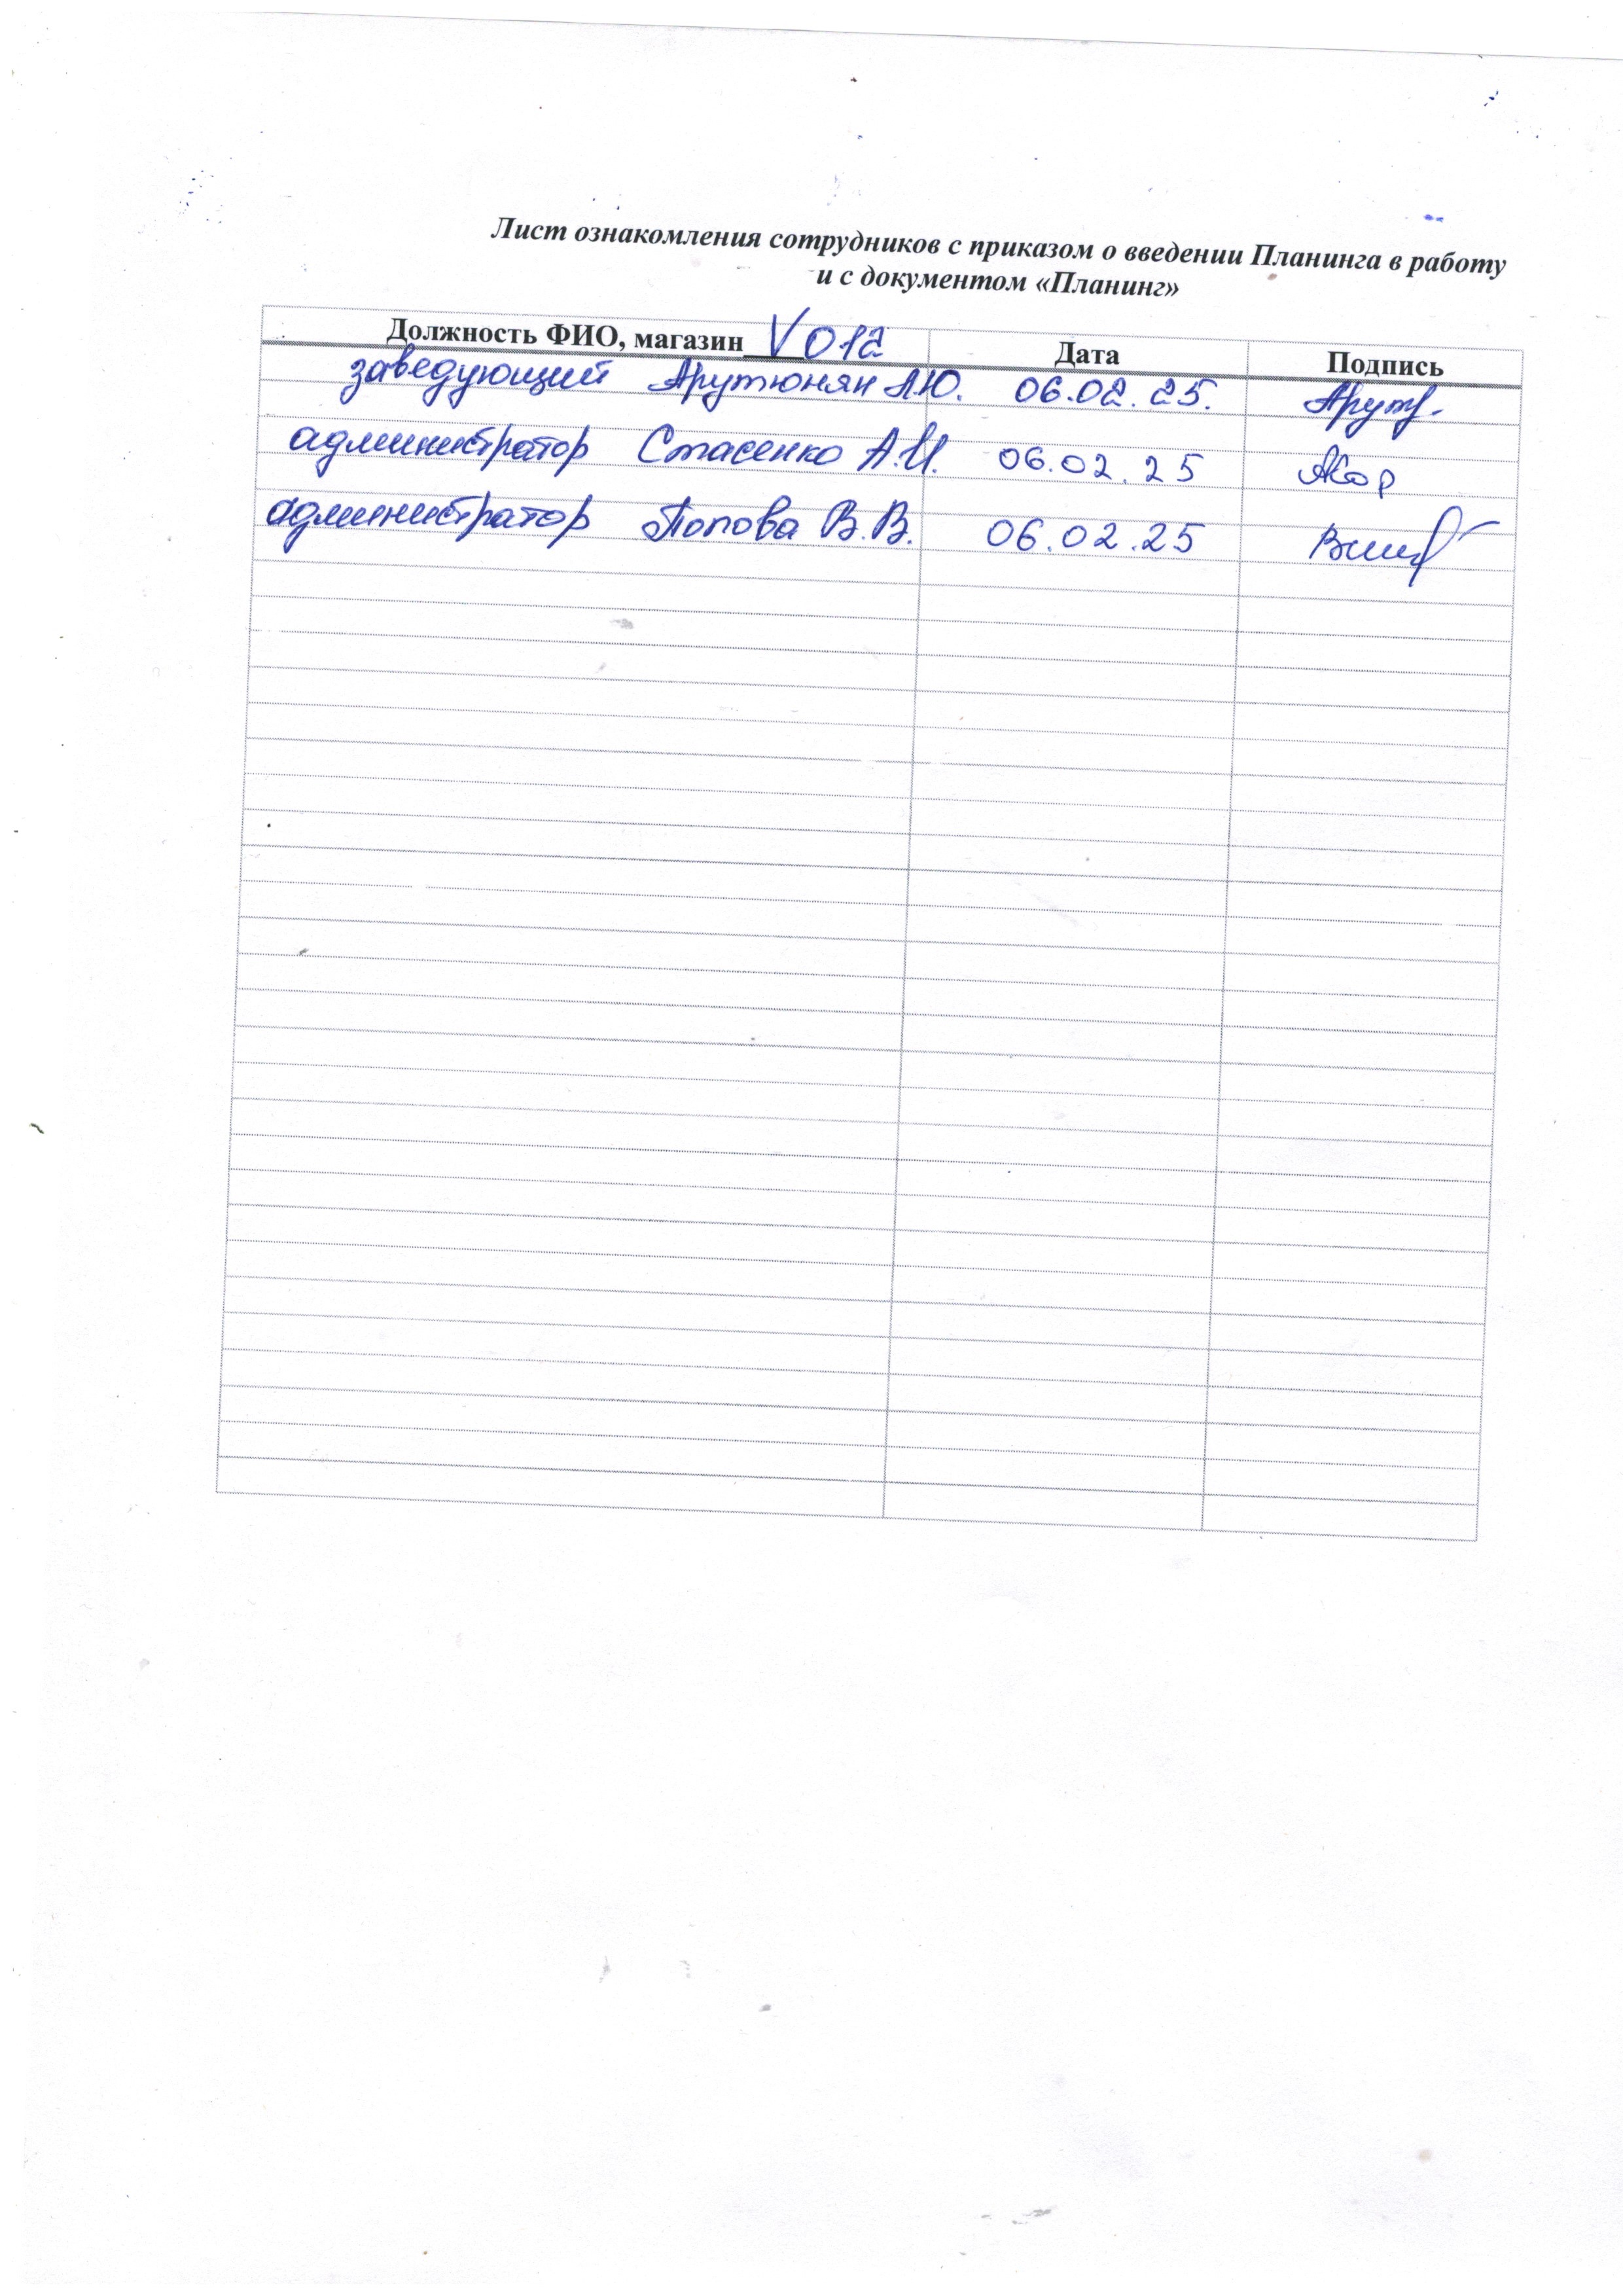 Лист ознакомления сотрудников с приказом о введении Планинга в работу
и с документом «Планинг»
Должность ФИО, магазин V012 Дата Подпись
заведующий Арутюнян А.Ю. 06.02.25. Арут.
администратор Стасенко А.И. 06.02.25
администратор Попова В.В. 06.02.25